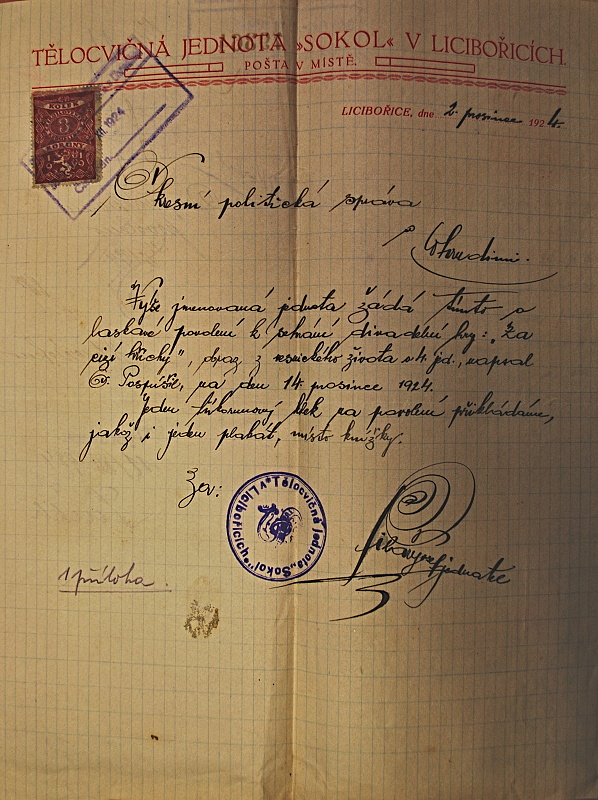 TĚLOCVIČNÁ JEDNOTA »SOKOL« V LICIBOŘICÍCH.
POŠTA V MÍSTĚ.
LICIBOŘICE, dne 2. prosince 1924.
KOLEK
3
KORUNY
1924
okresní politická správa
v Chrudimi.
Výše jmenovaná jednota žádá tímto o
laskavé povolení k sehrání divadelní hry: „Za
cizí hříchy", obraz z vesnického života o 4 jed., napsal
Pospíšil, na den 14. prosince 1924.
Jeden tříkorunový kolek na povolení přikládáme,
jakož i jeden plakát, místo knížky.
Za v:
Tělocvičná jednota „Sokol" v Licibořicích
jednatel
1 příloha.